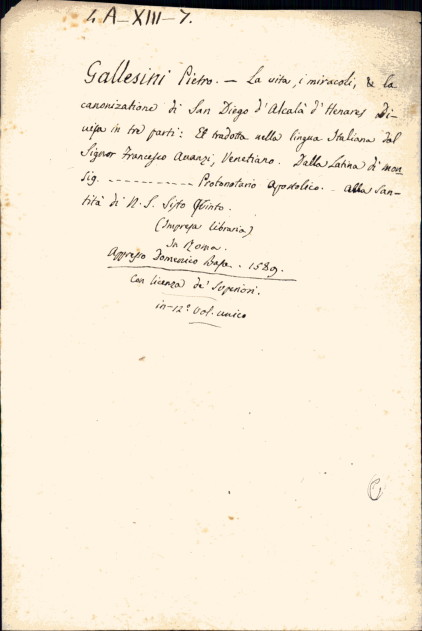 4A-XIII-7.
Gallesini Pietro. — La vita, i miracoli, & la
canonizatione di San Diego d'Alcalà d'Henares Di-
uisa in tre parti: Et tradotta nella lingua Italiana dal
Signor Francesco Auanzi, Venetiano. Dalla Latina di mon-
sig. ----------- Protonotario Apostolico. - alla San-
tità di N. S. Sisto Quinto.
(Impresa libraria)
In Roma.
Appresso Domenico Basa. - 1589.
Con licenza de' Superiori.
in-12º vol. unico
C